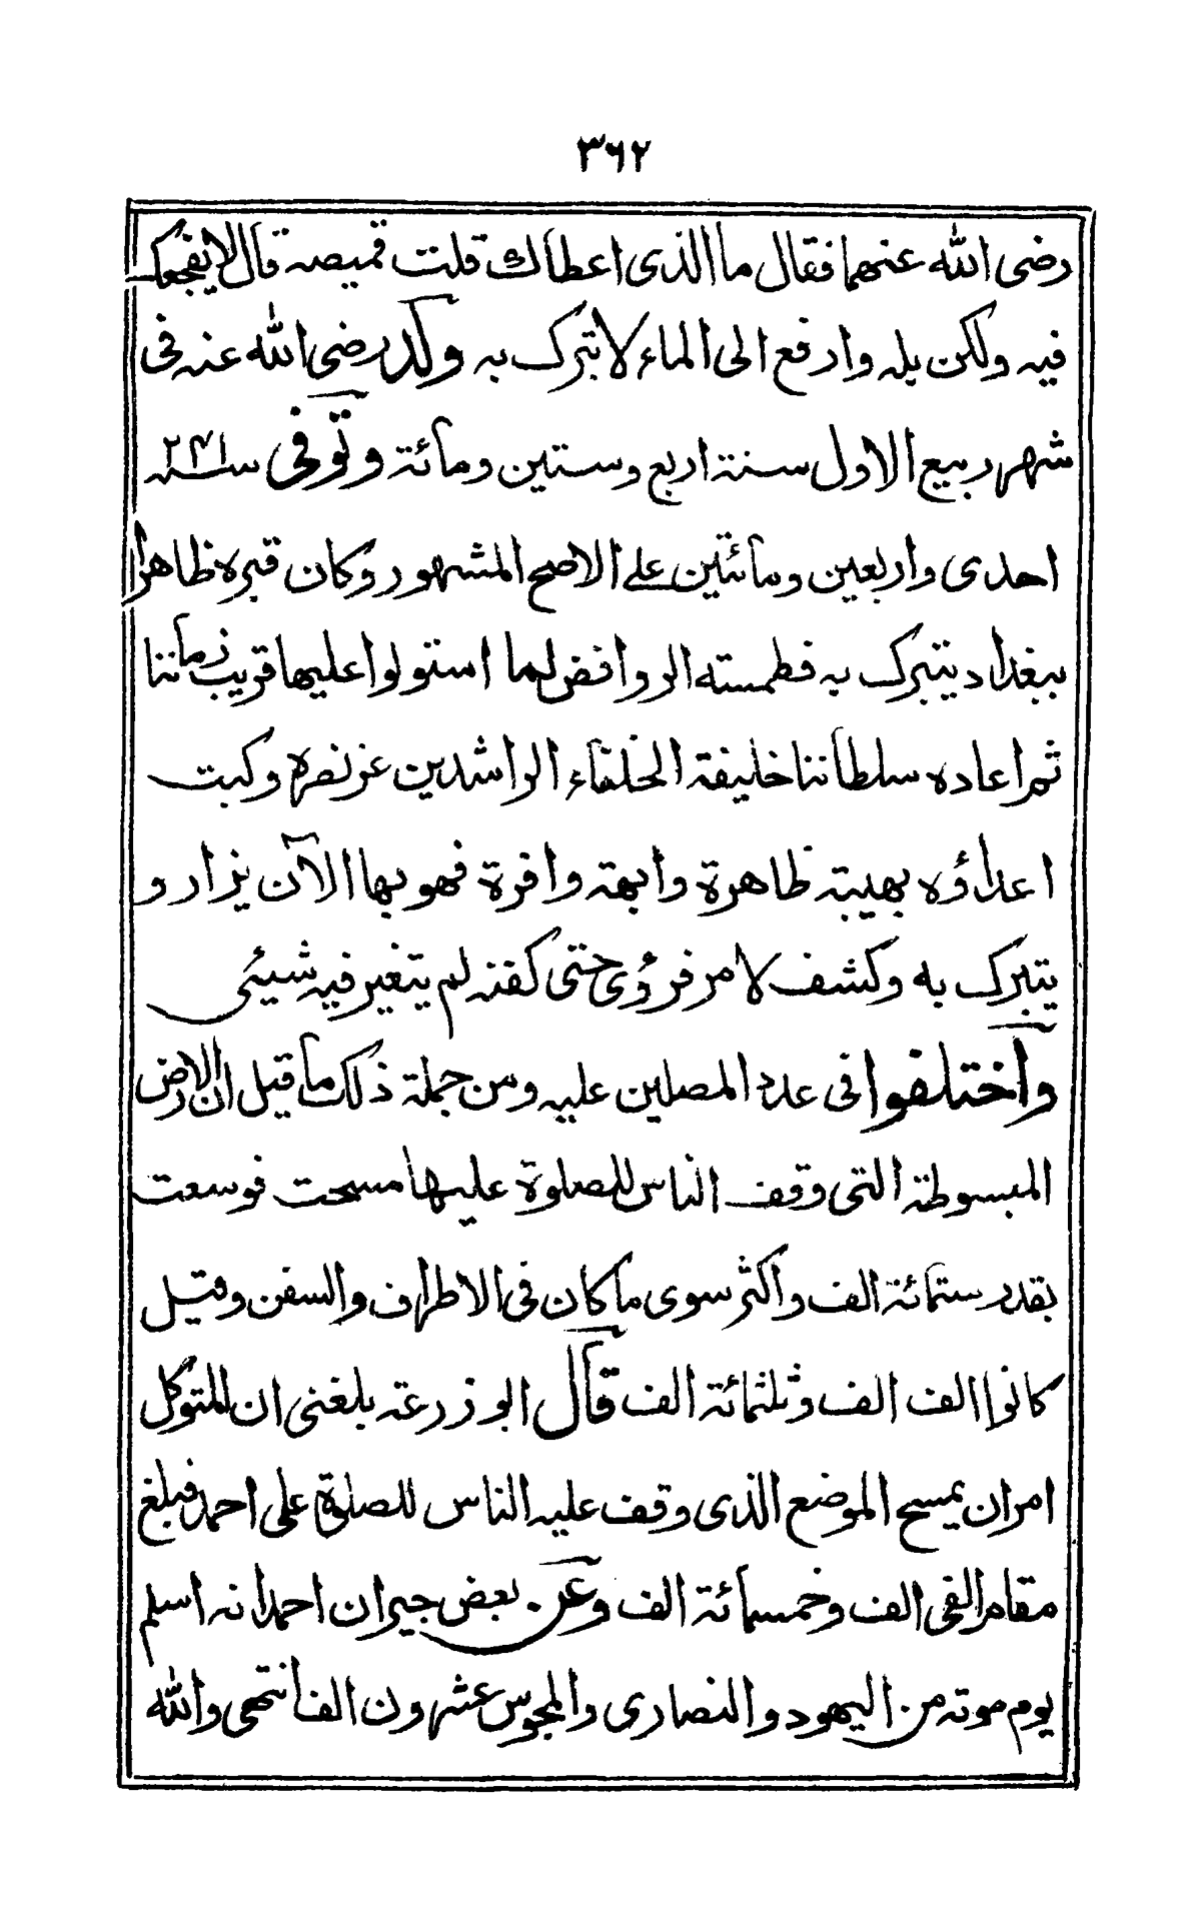 ٣٦٢
رضى الله عنهما فقال ما الذى اعطاك قلت قميصه قال لا نفجعك
فيه ولكن بله وارفع الى الماء لا تبرك به ولد رضى الله عنه فى
شهر ربيع الاول سنة اربع وستين ومائة وتوفى سنه ٢٤١
احدى واربعين ومائتين على الاصح المشهور وكان قبره ظاهرا
ببغداد يتبرك به فطمسته الروافض لما استولوا عليها قريب زماننا
ثم اعاده سلطاننا خليفة الخلفاء الراشدين عز نصره وكبت
اعداؤه بهيبة ظاهرة وابهة وافرة فهو بها الآن يزار و
يتبرك به وكشف لامر فرؤى حتى كفنه لم يتغير فيه شيئى
واختلفوا فى عدد المصلين عليه ومن جملة ذلك ما قيل ان الارض
المبسوطة التى وقف الناس للصلوة عليها مسحت فوسعت
بقدر ستمائة الف واكثر سوى ما كان فى الاطراف والسفن وقيل
كانوا الف الف وثلثمائة الف قال ابو زرعة بلغنى ان المتوكل
امر ان يمسح الموضع الذى وقف عليه الناس للصلوة على احمد فبلغ
مقام الفى الف وخمسمائة الف وعن بعض جيران احمد انه اسلم
يوم موته من اليهود والنصارى والمجوس عشرون الفا انتهى والله